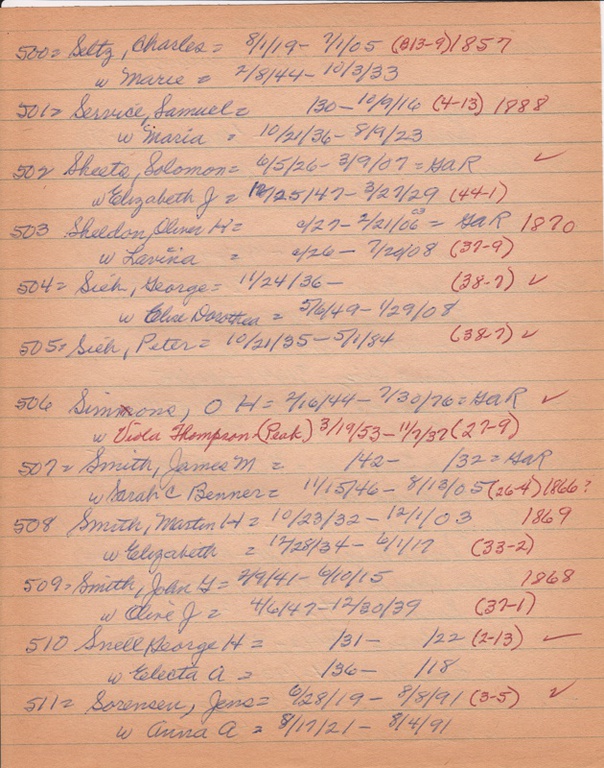 500= Seltz, Charles = 8/1/19- 7/1/05 (813-9) 1857
w Marie = 2/8/44- 10/3/33
501= Service, Samuel = /30- 10/9/16 (4-13) 1888
w Maria = 10/21/36- 8/9/23
502 Sheets, Solomon= 6/5/26-3/9/07=GaR ✓
w Elizabeth J = /25/47-3/27/29 (44-1)
503 Sheldon, Oliver H= c/27-2/21/06 = GaR 1870
w Lavina = c/26- 7/20/08 (37-9)
504= Sieh, George= 11/24/36- (38-7) ✓
w Elise Dorothea = 5/6/49-1/29/08
505= Sieh, Peter= 10/21/35-5/1/84 (38-7) ✓
506 Simmons, O H= 2/16/44- 7/30/76=GaR ✓
w Viola Thompson (Peak) 3/19/53-11/7/37 (27-9)
507= Smith, James M = /42- /32=GaR
w Sarah C Benner= 11/15/46- 8/13/05 (26-4) 1866?
508 Smith, Martin H= 10/23/32-12/1/03 1869
w Elizabeth = 12/28/34- 6/1/17 (33-2)
509= Smith, John G= 2/9/41- 6/10/15 1868
w Olive J = 4/6/47-12/30/39 (37-1)
510 Snell George H= /31- /22 (2-13) ✓
w Electa A = /36- /18
511= Sorensen, Jens= 6/28/19- 8/8/91 (3-5) ✓
w Anna A = 8/17/21- 8/4/91